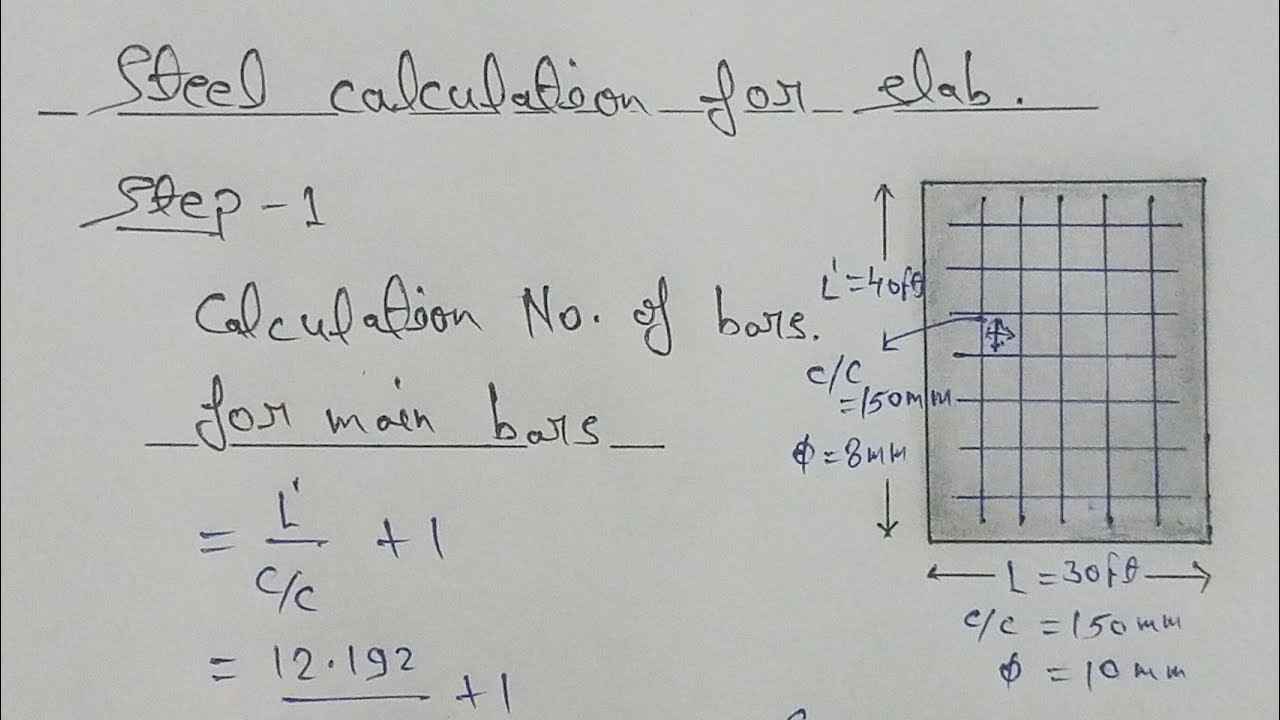 Steel calculation for slab.
Step-1
Calculation No. of bars.
for main bars
= L'
C/C
+ 1
= 12.192
+ 1
L' = 40ft
C/C
= 150mm
ϕ = 8mm
L = 30ft
C/C = 150mm
ϕ = 10mm